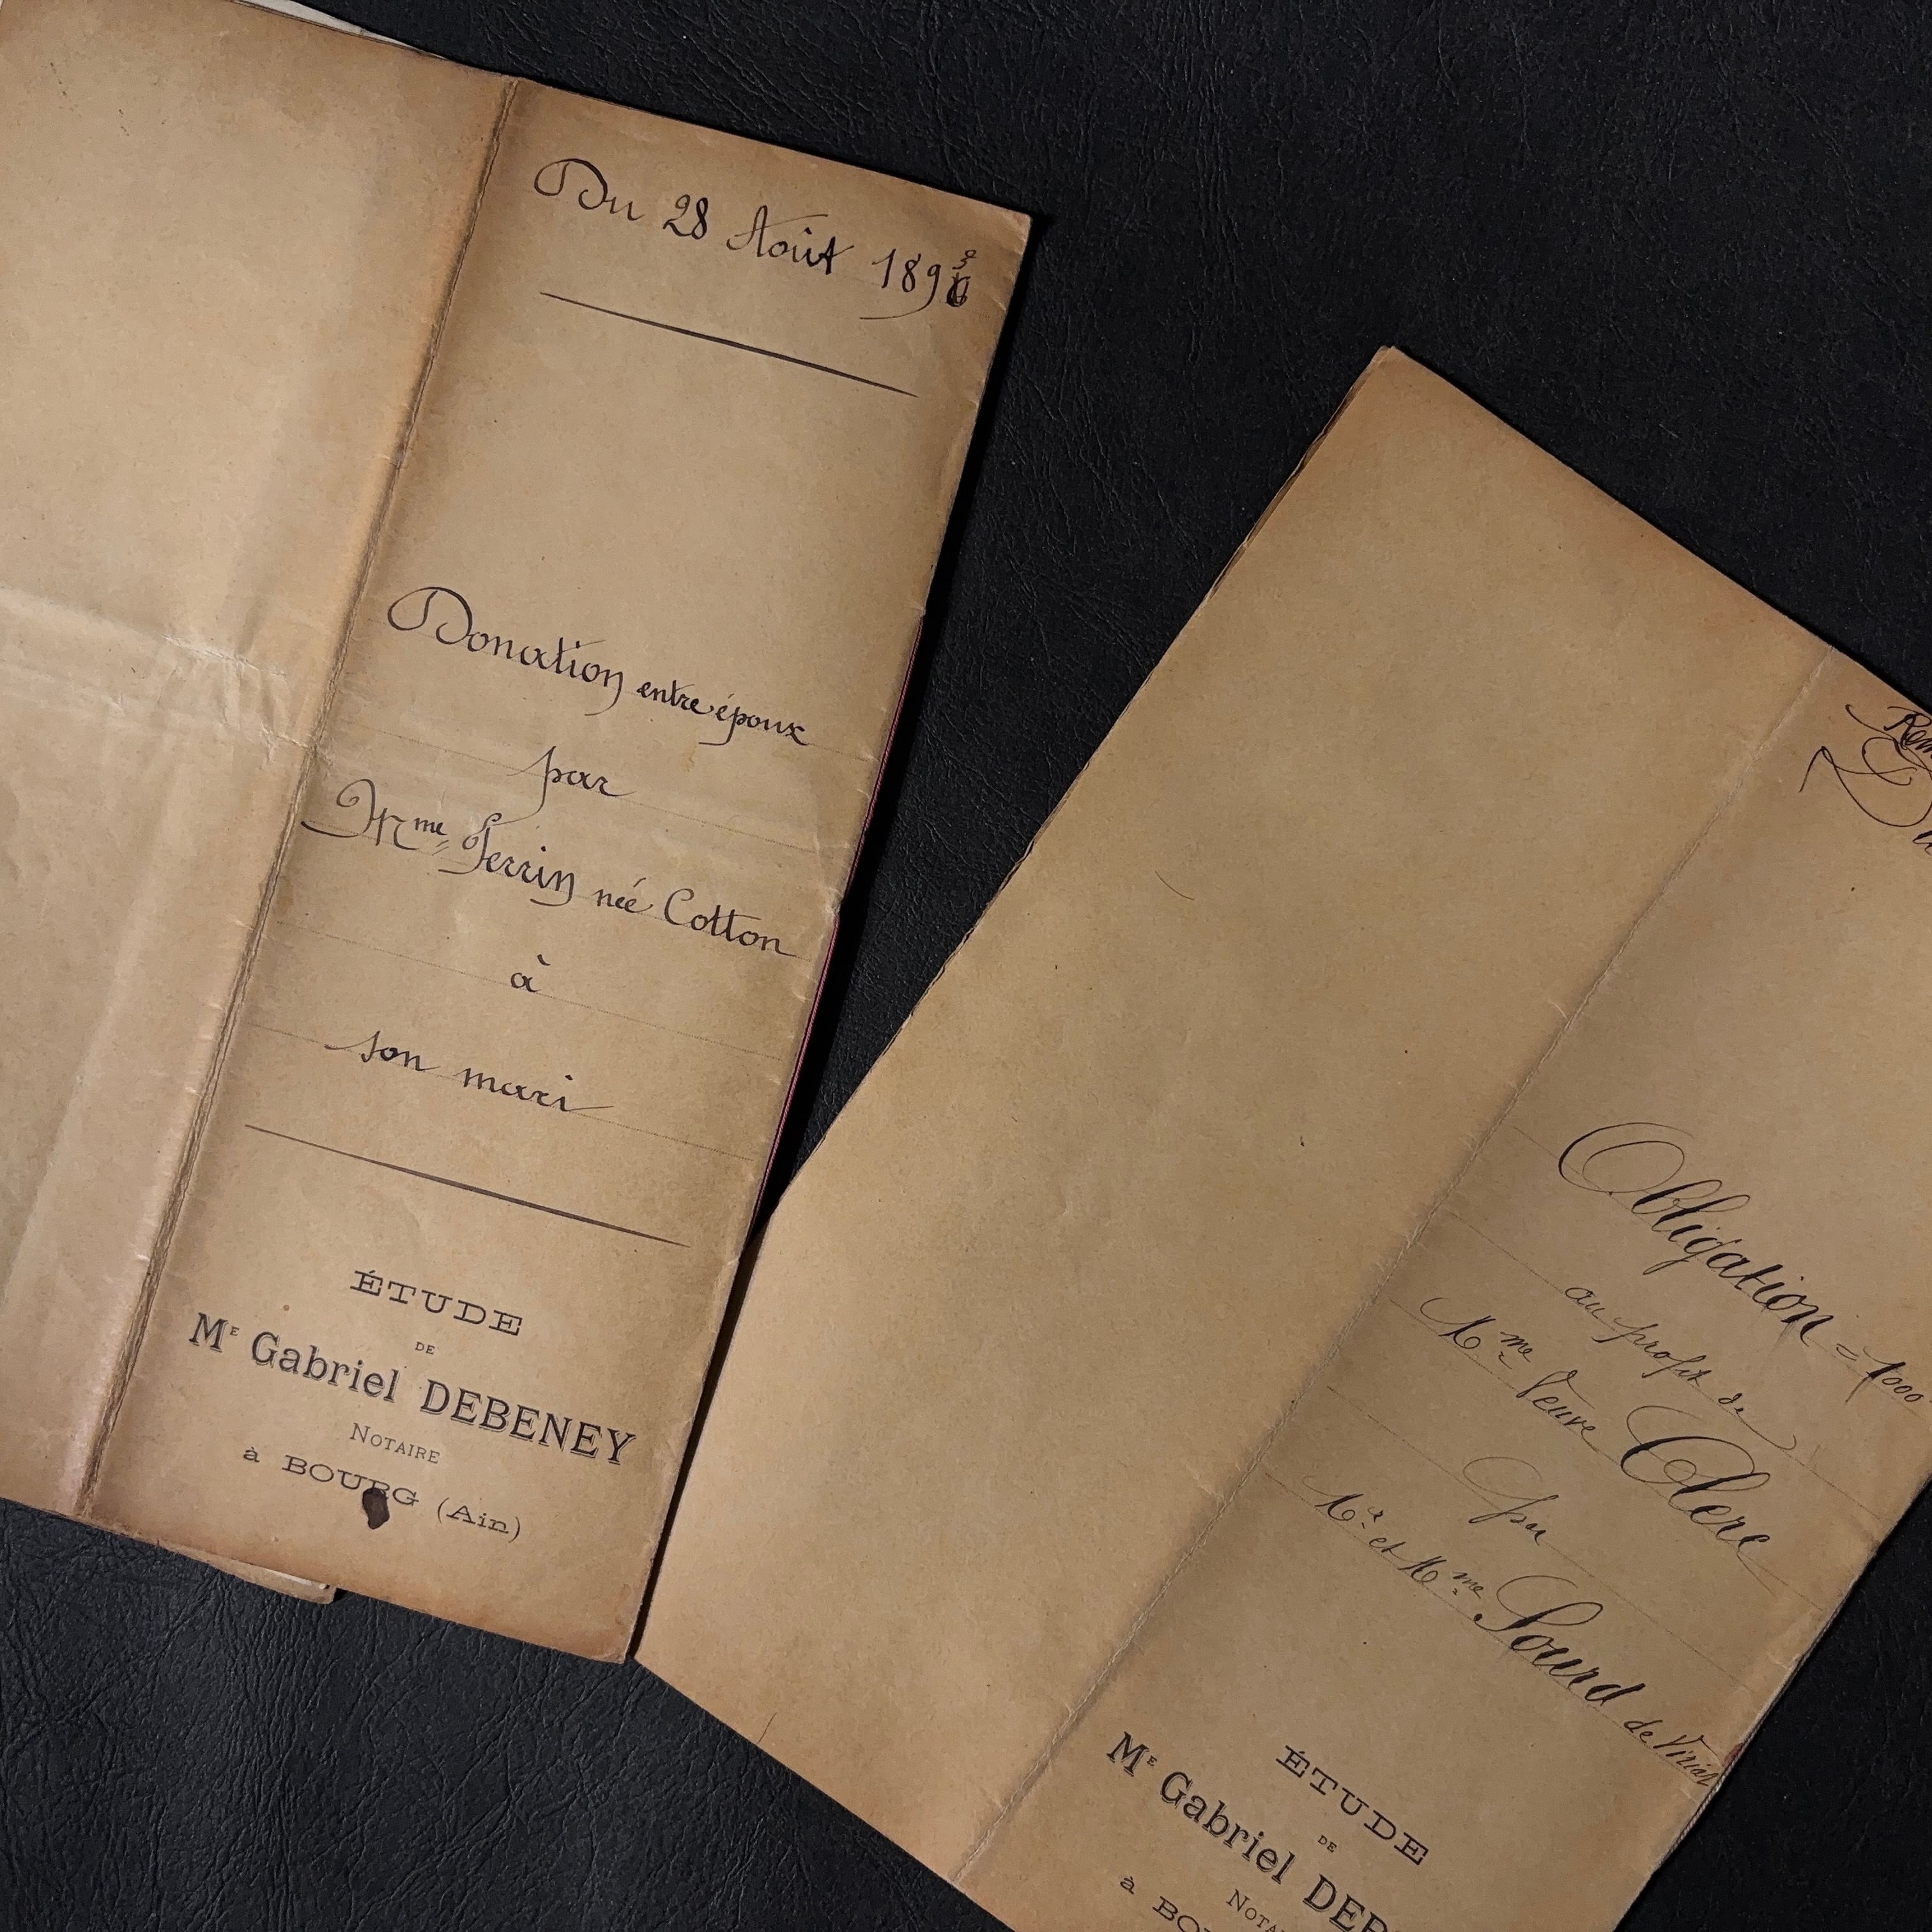 Du 28 Août 1893
Donation entre époux
par
Mme Perrin née Cotton
à
son mari
ÉTUDE
DE
ME Gabriel DEBENEY
NOTAIRE
à BOURG (Ain)
Obligation = 1000
au profit de
Mme Veuve Clerc
par
Mr et Mme Sourd de Viriat
ÉTUDE
DE
ME Gabriel DEB
NOTA
à BO